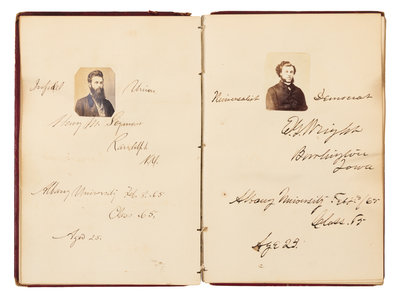 Infidel Union
Henry M. Seymour
Randolph
N.Y.
Albany University Feb. 8. 65
Class 65.
Aged 25.
Universalist Democrat
Wright
Burlington
Iowa
Albany University Feb /65
Class. 65
Age 23.